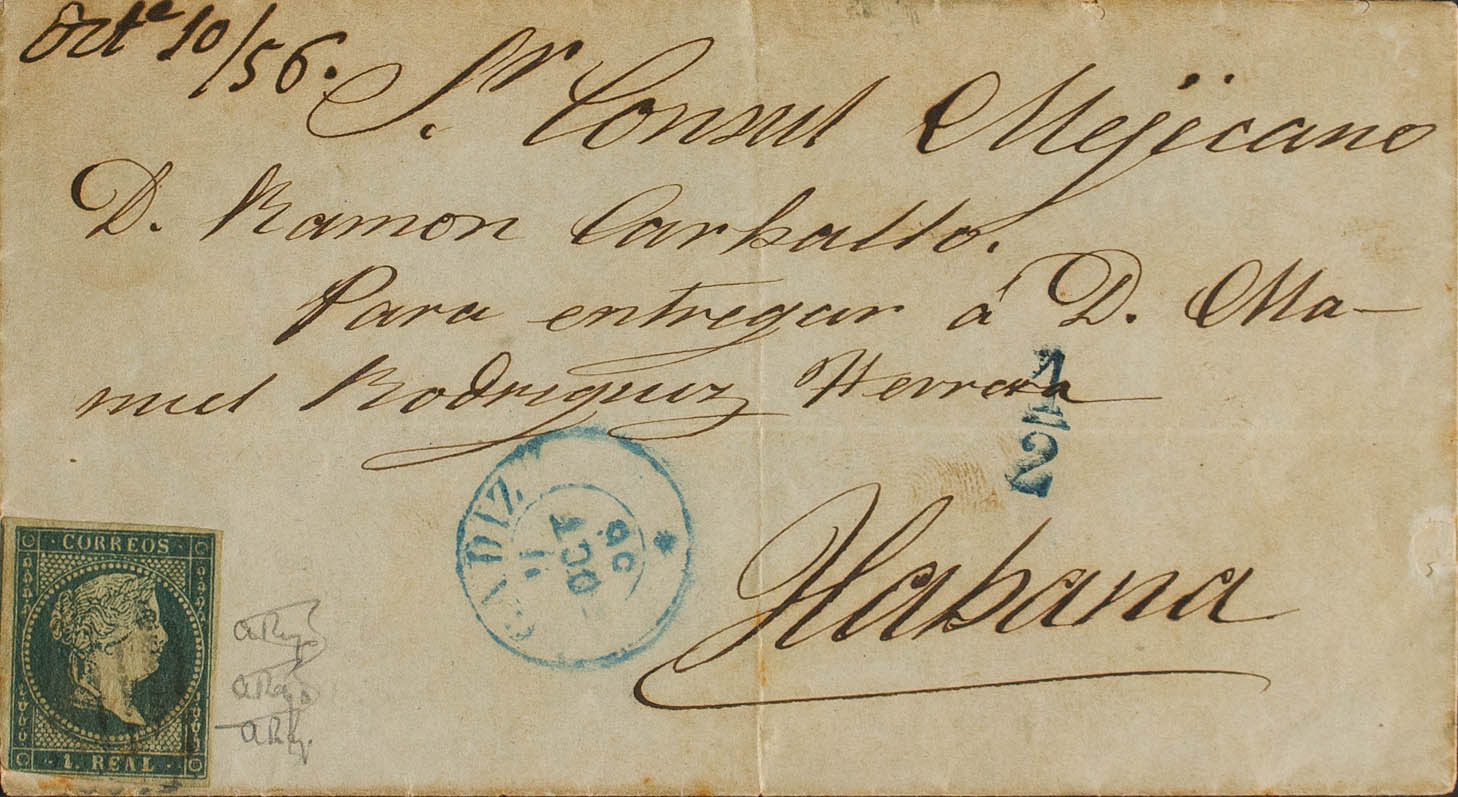 Octe 10/56.
Sr. Consul Mejicano
D. Ramon Carballo.
Para entregar á D. Ma-
nuel Rodriguez Herrera
1
2
Habana
CADIZ
OCT
56
CORREOS
1. REAL